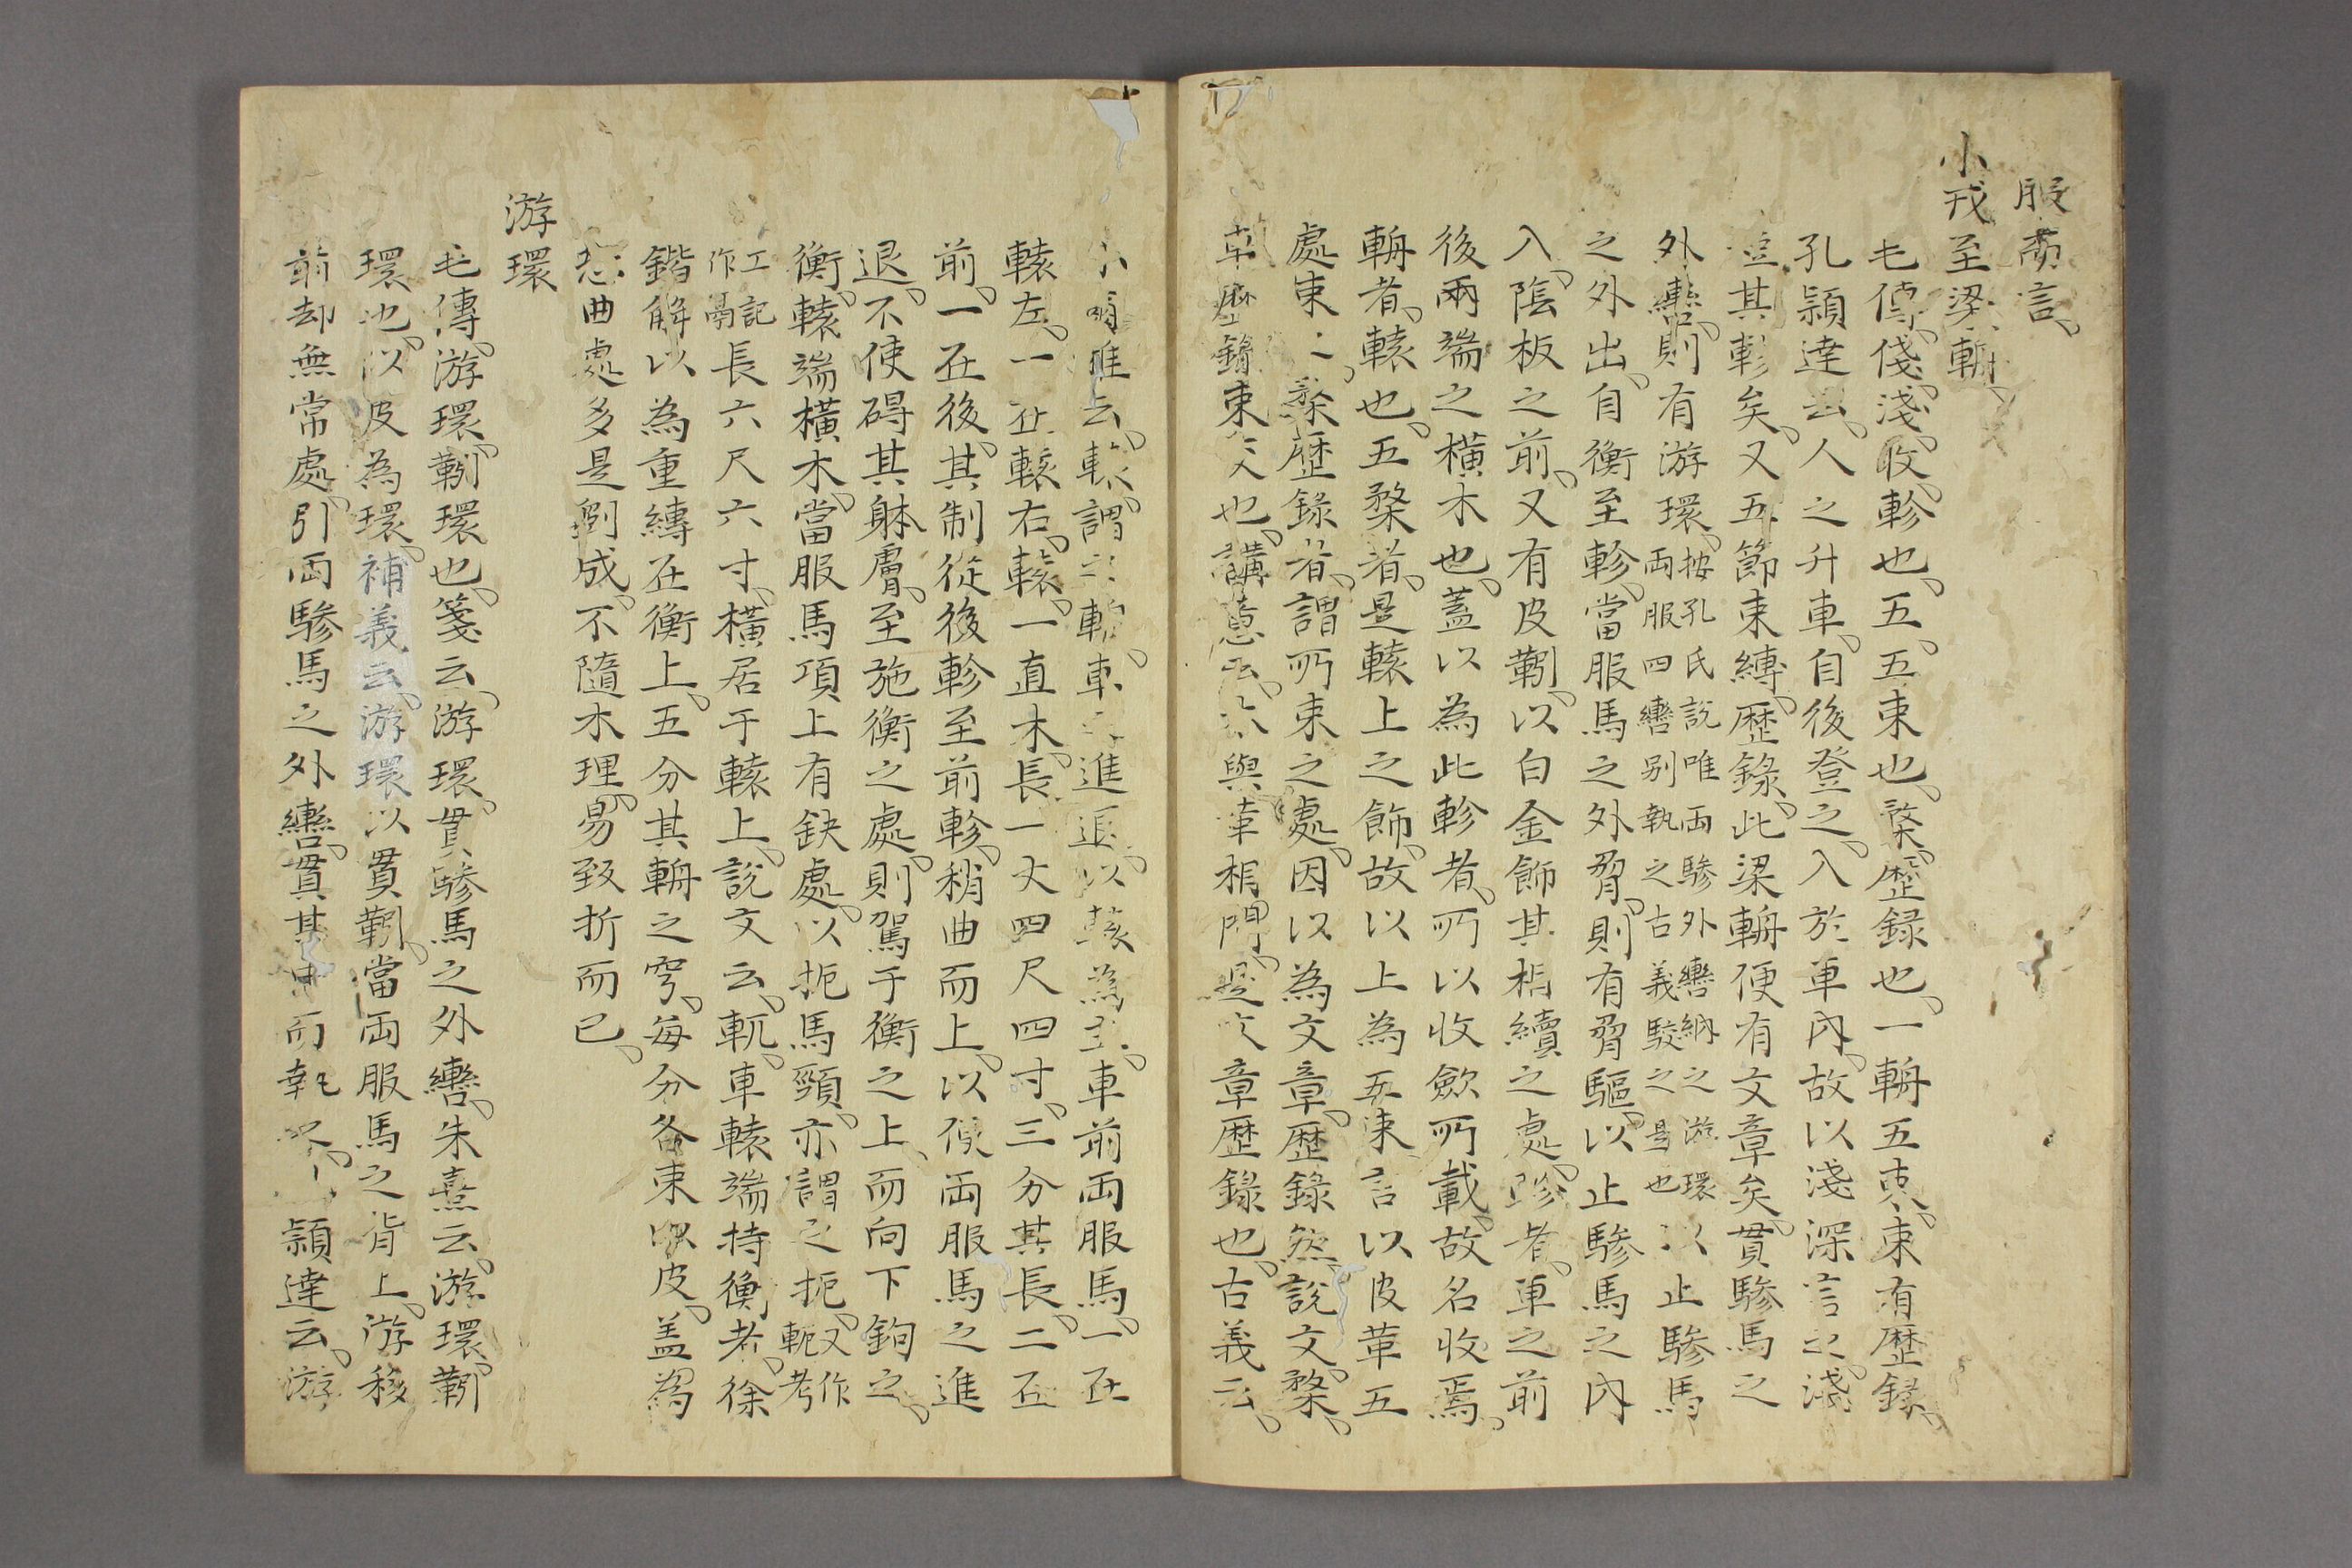 服商言、
小戎至梁輈、
毛傳、俴、淺、收、軫也、五、五束也、楘、歷録也、一輈五束、束有歴録、
孔頴達云、人之升車、自後登之、入於車内、故以淺深言之、淺
其軫矣、又五節束縛、歴錄、此梁輈便有文章矣、貫驂馬之
外轡、則有游環、按孔氏說唯両驂外轡納之游環両服四轡别執之古義駁之是也以止驂馬
之外出、自衡至軫、當服馬之外脅、則有脅驅、以止驂馬之内
入、陰板之前、又有皮靷、以白金飾其相續之處、軫者、車之前
後兩端之橫木也、蓋以為此軫者、所以收斂所載、故名收焉、
輈者、轅也、五楘者、是轅上之飾、故以上為五束言以皮革五
處束之、楘歷錄者、謂所束之處、因以為文章、歴錄然、說文、楘、
車歷錄束文也、講意云、革相間、是文章歴錄也、古義云、
小爾雅云、轅、謂之輈、車之進退、以轅為主、車前両服馬、一在
轅左、一在轅右、轅、一直木、長一丈四尺四寸、三分其長、二在
前、一在後、其制從後軫至前軫、稍曲而上、以便両服馬之進
退、不使碍其躰膚、至施衡之處、則駕于衡之上、而向下鉤之、
衡、轅端橫木、當服馬項上有缺處、以扼馬頸、亦謂之扼、又作軛考
工記作鬲長六尺六寸、橫居于轅上、說文云、軏、車轅端持衡者、徐
鍇解以為重縛在衡上、五分其輈之穹、每分各束以皮、盖為
恐曲處多是剜成、不隨木理、易致折而已、
游環
毛傳、游環、靷環也、箋云、游環、貫驂馬之外轡、朱熹云、游環、靷
環也、以皮為環、補義云、游環以貫靷、當両服馬之背上、游移
前却無常處、引両驂馬之外轡、貫其中而執之、頴達云、游